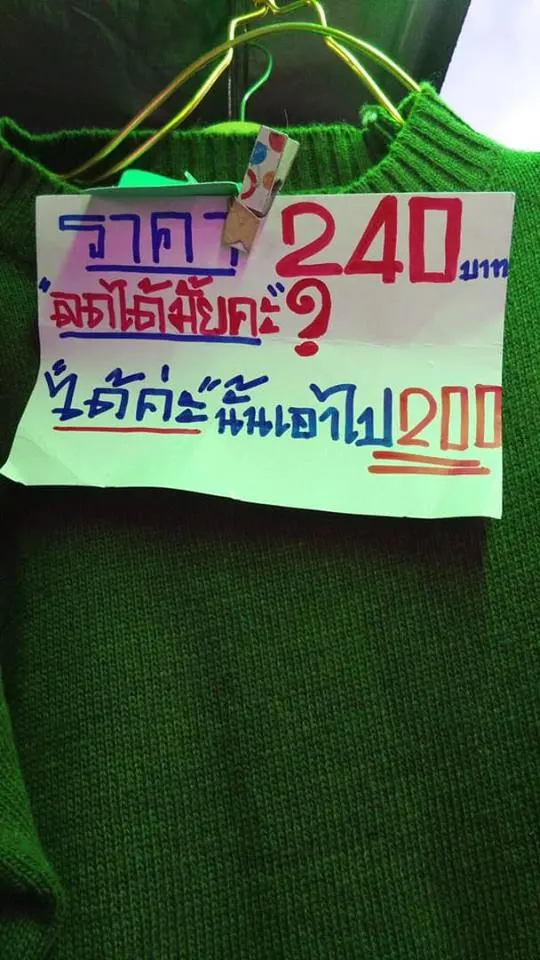 ราคา 240 บาท
"ลดได้มั้ยคะ"?
"ได้ค่ะ" นั้นเอาไป 200